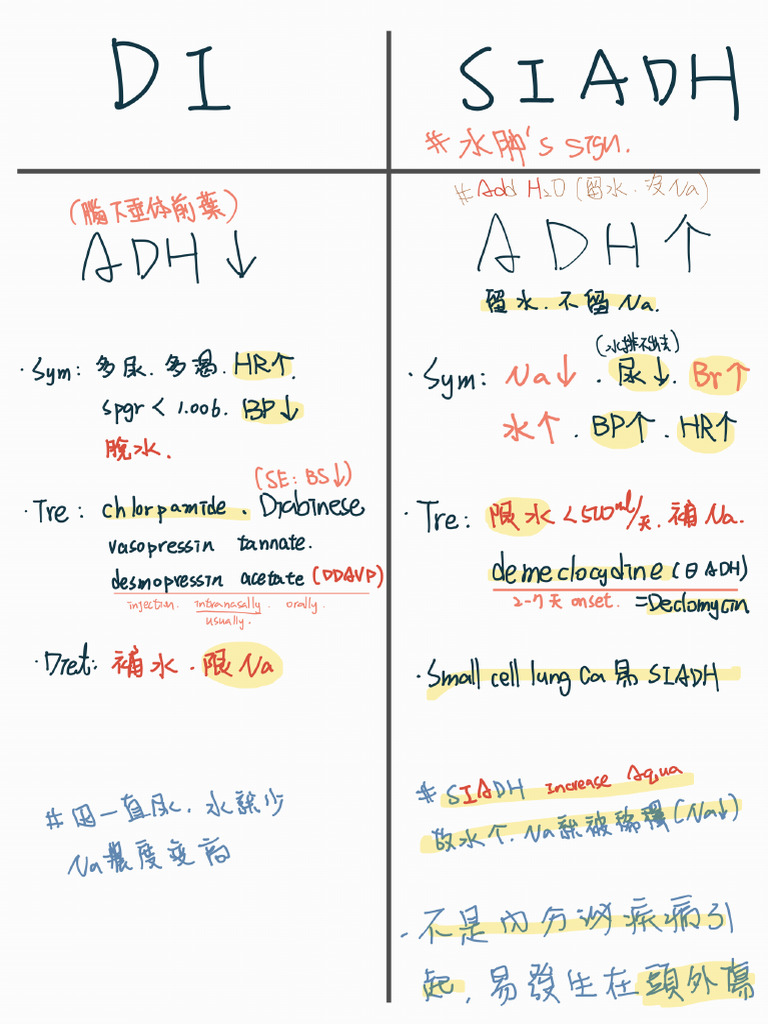 DI
(腦下垂体前葉)
ADH↓
·Sym: 多尿. 多渴. HR↑.
spgr < 1.006. BP↓
脫水.
(SE: BS↓)
·Tre: chlorpamide. Diabinese
vasopressin tannate.
desmopressin acetate (DDAVP)
injection. intranasally. orally.
usually.
·Diet: 補水. 限Na
#因一直尿. 水就少
Na濃度變高
SIADH
#水肿's sign.
#Add H2O (留水. 沒Na)
ADH↑
留水. 不留Na.
(水排不出去)
·Sym: Na↓. 尿↓. Br↑
水↑. BP↑. HR↑
·Tre: 限水<500ml/天. 補Na.
demeclocydine (⊖ADH)
2-7天 onset. =Declomycin
·Small cell lung Ca 易 SIADH
#SIADH Increase Aqua
故水个. Na就被稀釋(Na↓)
·不是內分泌疾病引
起, 易發生在頭外傷